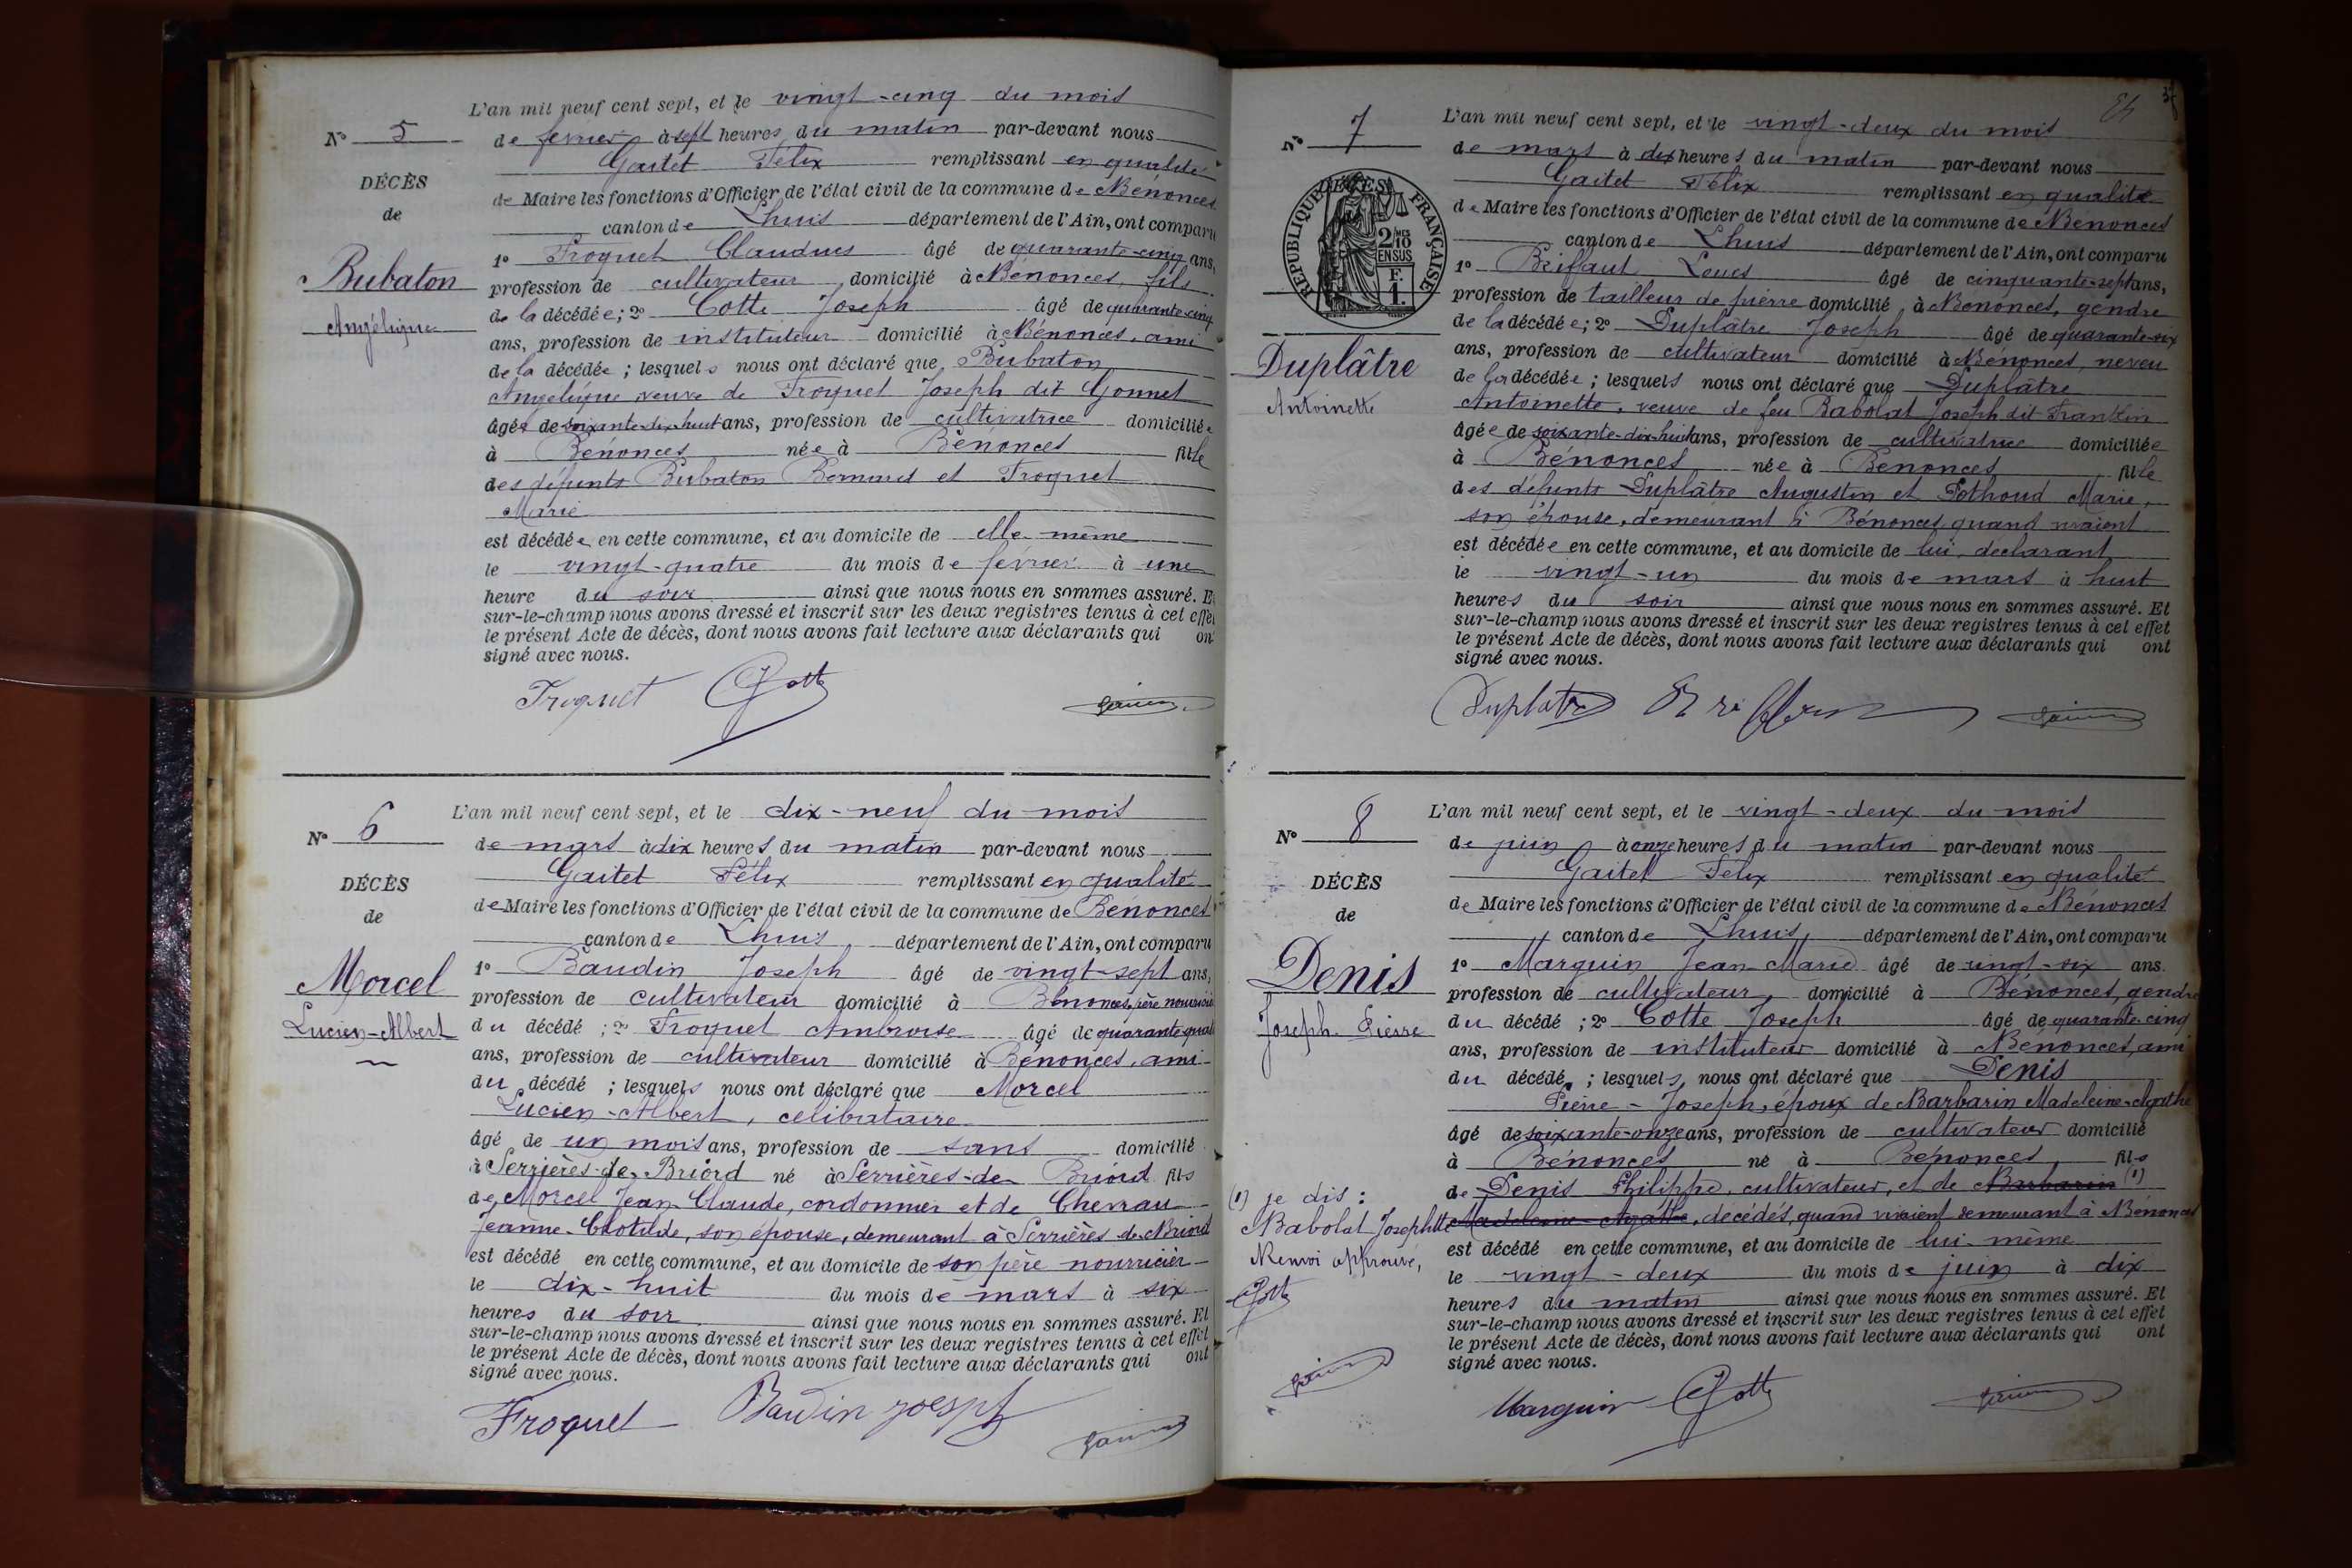 L'an mil neuf cent sept, et le vingt-cinq du mois
N° 5
de fevrier à sept heures du matin par-devant nous
Gaitet Félix remplissant en qualité
DÉCÈS
de Maire les fonctions d'Officier de l'état civil de la commune de Bénonces
de
canton de Lhuis département de l'Ain, ont comparu
1° Froquet Claudius âgé de quarante-cinq ans,
Bubaton
profession de cultivateur domicilié à Bénonces, fils
de la décédée; 2° Cotte Joseph âgé de quarante-cinq
Angélique
ans, profession de instituteur domicilié à Bénonces, ami
de la décédée ; lesquels nous ont déclaré que Bubaton
Angélique veuve de Froquet Joseph dit Gonnet
âgée de soixante-dix-huit ans, profession de cultivatrice domiciliée
à Bénonces née à Bénonces fille
des défunts Bubaton Bernard et Froquet
Marie
est décédée en cette commune, et au domicile de elle-même
le vingt-quatre du mois de février à une
heure du soir ainsi que nous nous en sommes assuré. Et
sur-le-champ nous avons dressé et inscrit sur les deux registres tenus à cet effet
le présent Acte de décès, dont nous avons fait lecture aux déclarants qui ont
signé avec nous.
Froquet Cotte
L'an mil neuf cent sept, et le dix-neuf du mois
N° 6
de mars à dix heures du matin par-devant nous
Gaitet Félix remplissant en qualité
DÉCÈS
de Maire les fonctions d'Officier de l'état civil de la commune de Bénonces
de
canton de Lhuis département de l'Ain, ont comparu
1° Baudin Joseph âgé de vingt-sept ans,
Morcel
profession de cultivateur domicilié à Bénonces, père nourricier
Lucien-Albert
du décédé ; 2° Froquet Ambroise âgé de quarante-quatre
ans, profession de cultivateur domicilié à Bénonces, ami
du décédé ; lesquels nous ont déclaré que Morcel
Lucien-Albert, célibataire
âgé de un mois ans, profession de sans domicilié
à Serrières-de-Briord né à Serrières-de-Briord fils
de Morcel Jean-Claude, cordonnier et de
Jeanne-Clotilde, son épouse, demeurant à Serrières-de-Briord
est décédé en cette commune, et au domicile de son père nourricier
le dix-huit du mois de mars à six
heures du soir ainsi que nous nous en sommes assuré. Et
sur-le-champ nous avons dressé et inscrit sur les deux registres tenus à cet effet
le présent Acte de décès, dont nous avons fait lecture aux déclarants qui ont
signé avec nous.
Froquet Baudin joesph
L'an mil neuf cent sept, et le vingt-deux du mois
N° 7
de mars à dix heures du matin par-devant nous
Gaitet Félix remplissant en qualité
DÉCÈS
RÉPUBLIQUE FRANÇAISE
2/10 EN SUS
F. 1.
de Maire les fonctions d'Officier de l'état civil de la commune de Bénonces
canton de Lhuis département de l'Ain, ont comparu
1° Briffaut Louis âgé de cinquante-sept ans,
profession de tailleur de pierre domicilié à Bénonces, gendre
de la décédée; 2° Duplâtre Joseph âgé de quarante-six
Duplâtre
ans, profession de cultivateur domicilié à Bénonces, neveu
de la décédée ; lesquels nous ont déclaré que Duplâtre
Antoinette
Antoinette, veuve de feu Babolat Joseph dit Frankin
âgée de soixante-dix-huit ans, profession de cultivatrice domiciliée
à Bénonces née à Bénonces fille
des défunts Duplâtre Augustin et Pothoud Marie,
son épouse, demeurant à Bénonces quand vivaient
est décédée en cette commune, et au domicile de lui, déclarant
le vingt-un du mois de mars à huit
heures du soir ainsi que nous nous en sommes assuré. Et
sur-le-champ nous avons dressé et inscrit sur les deux registres tenus à cet effet
le présent Acte de décès, dont nous avons fait lecture aux déclarants qui ont
signé avec nous.
Duplatre
L'an mil neuf cent sept, et le vingt-deux du mois
N° 8
de juin à onze heures du matin par-devant nous
Gaitet Félix remplissant en qualité
DÉCÈS
de Maire les fonctions d'Officier de l'état civil de la commune de Bénonces
de
canton de Lhuis département de l'Ain, ont comparu
1° Marguin Jean-Marie âgé de vingt-six ans.
Denis
profession de cultivateur domicilié à Bénonces, gendre
Joseph-Pierre
du décédé ; 2° Cotte Joseph âgé de quarante-cinq
ans, profession de instituteur domicilié à Bénonces, ami
du décédé ; lesquels nous ont déclaré que Denis
Pierre-Joseph, époux de Barbarin Madeleine-Agathe
âgé de soixante-onze ans, profession de cultivateur domicilié
à Bénonces né à Bénonces fils
de Denis Philippe, cultivateur, et de Barbarin (1)
Madeleine-Agathe, décédés, quand vivaient demeurant à Bénonces
(1) je dis :
Babolat Josephtte
Renvoi approuvé,
Cotte
est décédé en cette commune, et au domicile de lui-même
le vingt-deux du mois de juin à dix
heures du matin ainsi que nous nous en sommes assuré. Et
sur-le-champ nous avons dressé et inscrit sur les deux registres tenus à cet effet
le présent Acte de décès, dont nous avons fait lecture aux déclarants qui ont
signé avec nous.
Marguin Cotte